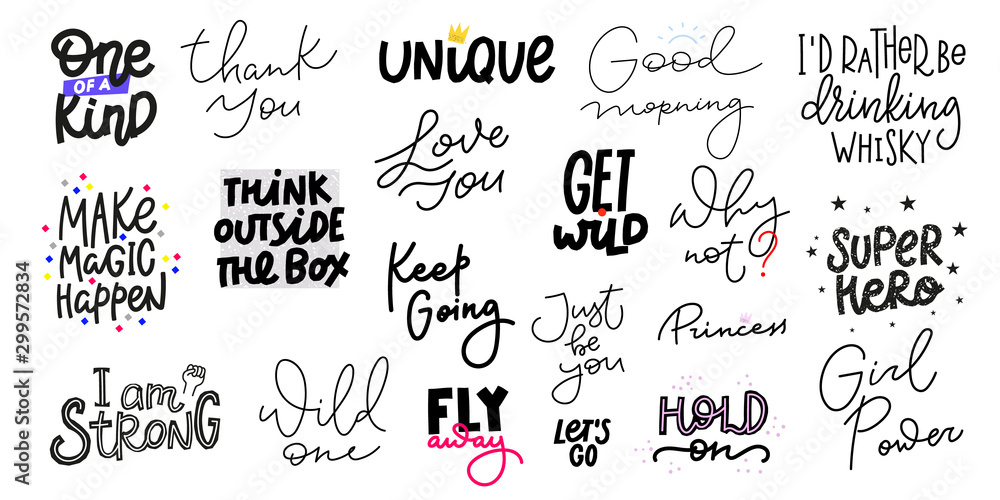 One
OF A
Kind
thank
you
UNiQUE
Good
morning
I'D RATHER BE
drinking
WHISKY
Love
you
MAKE
MaGiC
Happen
THiNK
OUTSiDE
THE BOX
GET
WiLD
Why
not?
SUPER
HERO
Keep
Going
Just
be
you
Princess
I am
STRONG
Wild
one
FLY
away
LET'S
GO
HOLD
on
Girl
Power
Adobe Stock | #299572834
Adobe Stock